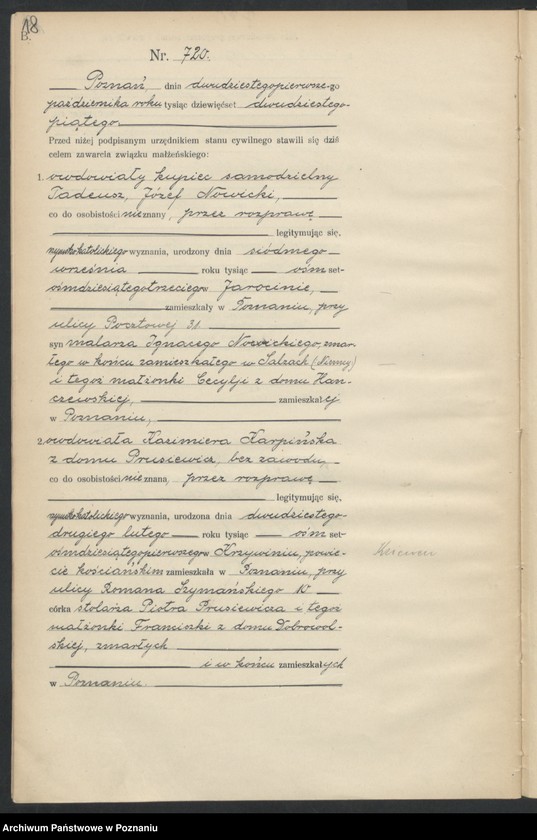 18
B.
Nr. 720.
Poznań, dnia dwudziestegopierwsze-go
października roku tysiąc dziewięćset dwudziestego-
piątego
Przed niżej podpisanym urzędnikiem stanu cywilnego stawili się dziś
celem zawarcia związku małżeńskiego:
1. owdowiały kupiec samodzielny
Tadeusz, Józef Nowicki,
co do osobistości nieznany, przez rozprawę
legitymując się,
rzymskokatolickiego wyznania, urodzony dnia siódmego
września roku tysiąc ośm set-
ośmdziesiątegotrzeciego w Jarocinie,
zamieszkały w Poznaniu, przy
ulicy Pocztowej 31
syn malarza Ignacego Nowickiego, zmar-
łego w końcu zamieszkałego w Salzach (Niemcy)
i tegoż małżonki Cecylji z domu Han-
czewskiej, zamieszkałej
w Poznaniu,
2. owdowiała Kazimiera Karpińska
z domu Prusiewicz, bez zawodu,
co do osobistości nieznana, przez rozprawę
legitymując się,
rzymskokatolickiego wyznania, urodzona dnia dwudziestego-
drugiego lutego roku tysiąc ośm set-
ośmdziesiątegopierwszego w Krzywiniu, powie-
cie kościańskim zamieszkała w Poznaniu, przy
ulicy Romana Szymańskiego 10
córka stolarza Piotra Prusiewicza i tegoż
małżonki Franciszki z domu Dobrowol-
skiej, zmarłych
i w końcu zamieszkałych
w Poznaniu.
Archiwum Państwowe w Poznaniu